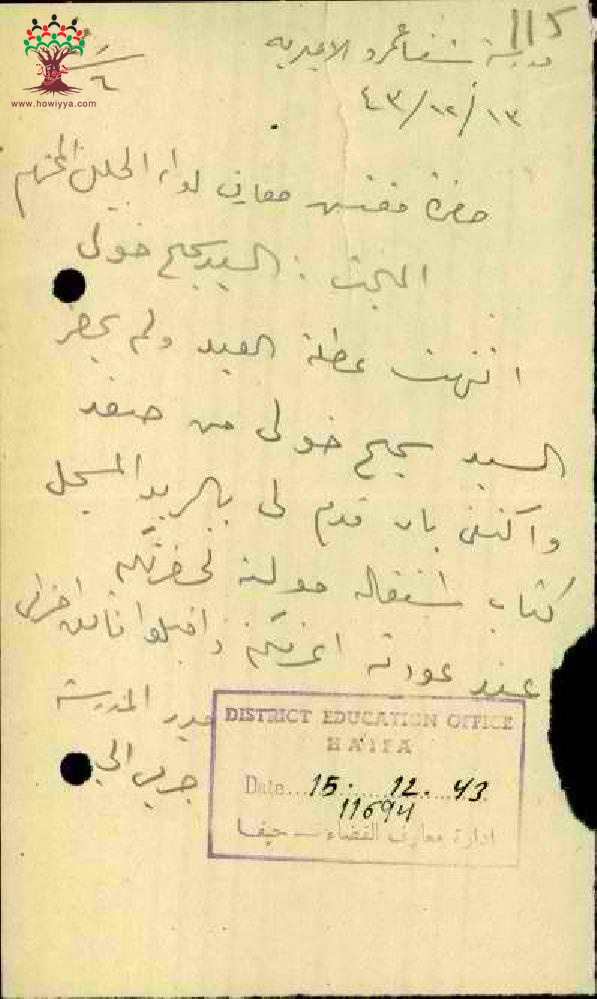 115
www.howiyya.com
مدرسة شفاعمرو الاميرية
٤٣/١٢/١٣
حضرة مفتش معارف لواء الجليل المحترم
المبحث : السيد سميح خولي
انتهت عطلة العيد ولم يحضر
السيد سميح خولي من صفد
واكتفى بان قدم لي بالبريد المسجل
كتاب استقاله حولته لحضرتكم
عند عودته اعرفكم واقبلوا فائق احترامي
مدير المدرسة
DISTRICT EDUCATION OFFICE
HAIFA
Date...15...12...43
11694
ادارة معارف القضاء — حيفا